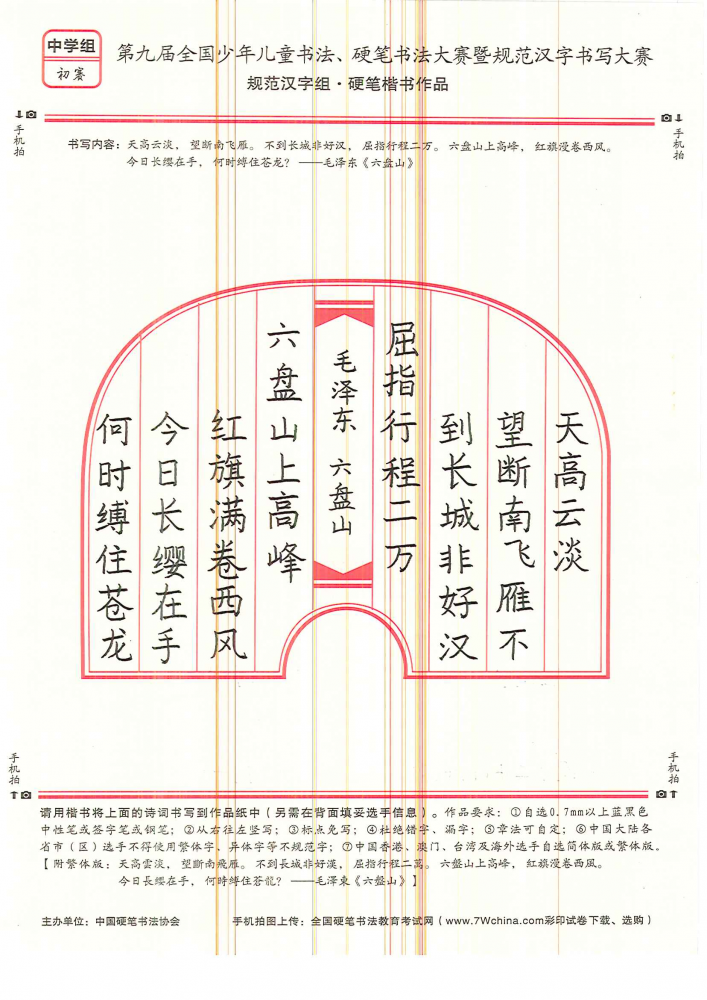 中学组
初赛
第九届全国少年儿童书法、硬笔书法大赛暨规范汉字书写大赛
规范汉字组·硬笔楷书作品
手机拍
手机拍
书写内容：天高云淡， 望断南飞雁。 不到长城非好汉， 屈指行程二万。 六盘山上高峰， 红旗漫卷西风。
今日长缨在手， 何时缚住苍龙？ ——毛泽东《六盘山》
天高云淡
望断南飞雁不
到长城非好汉
屈指行程二万
毛泽东 六盘山
六盘山上高峰
红旗满卷西风
今日长缨在手
何时缚住苍龙
手机拍
手机拍
请用楷书将上面的诗词书写到作品纸中（另需在背面填妥选手信息）。作品要求：①自选0.7mm以上蓝黑色
中性笔或签字笔或钢笔；②从右往左竖写；③标点免写；④杜绝错字、漏字；⑤章法可自定；⑥中国大陆各
省市（区）选手不得使用繁体字、异体字等不规范字；⑦中国香港、澳门、台湾及海外选手自选简体版或繁体版。
【附繁体版：天高雲淡， 望斷南飛雁。 不到長城非好漢， 屈指行程二萬。 六盤山上高峰， 紅旗漫卷西風。
今日長纓在手， 何時縛住蒼龍？ ——毛澤東《六盤山》】
主办单位：中国硬笔书法协会
手机拍图上传：全国硬笔书法教育考试网（www.7Wchina.com彩印试卷下载、选购）